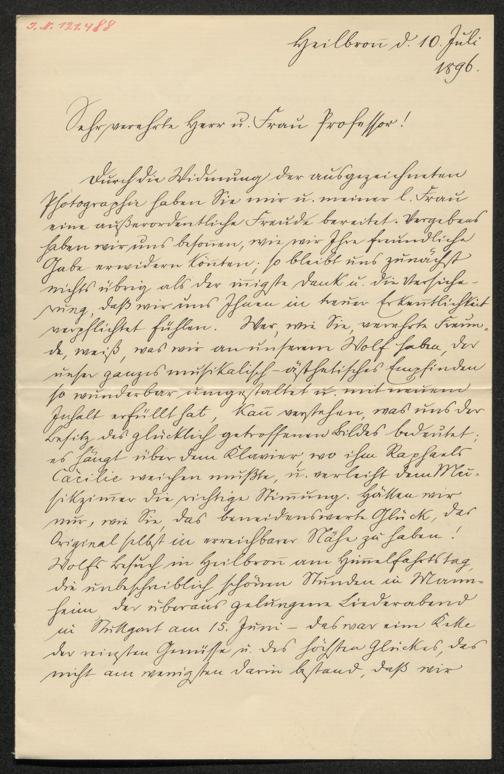 I.N. 121.488
Heilbron̄ d. 10. Juli
1896.
Sehr verehrte Herr u. Frau Professor!
Durch die Widmung der ausgezeichneten
Photographie haben Sie mir u. meiner l. Frau
eine außerordentliche Freude bereitet. Vergebens
haben wir uns besonnen, wie wir Ihre freundliche
Gabe erwidern könten; so bleibt uns zunächst
nichts übrig als der in̄igste Dank u. die Versiche-
rung, daß wir uns Ihnen in treuer Erken̄tlichkeit
verpflichtet fühlen. Wer, wie Sie, verehrte Freun-
de, weiß, was wir an unserem Wolf haben, der
unser ganzes musikalisch-ästhetisches Empfinden
so wunderbar umgestaltet u. mit neuem
Inhalt erfüllt hat, kan̄ verstehen, was uns der
Besitz des glücklich getroffenen Bildes bedeutet;
es hängt über dem Klavier, wo ihm Raphaels
Cäcilie weichen mußte, u. verleiht dem Mu-
sikzim̄er die richtige Stim̄ung. Hätten wir
nur, wie Sie, das beneidenswerte Glück, das
Original selbst in erreichbarer Nähe zu haben!
Wolfs Besuch in Heilbron̄ am Him̄elfahrtstag,
die unbeschreiblich schönen Stunden in Mann-
heim, der überaus gelungene Liederabend
in Stuttgart am 15. Juni – das war eine Kette
der Genüsse u. des höchsten Glückes, das
nicht am wenigsten darin bestand, daß wir